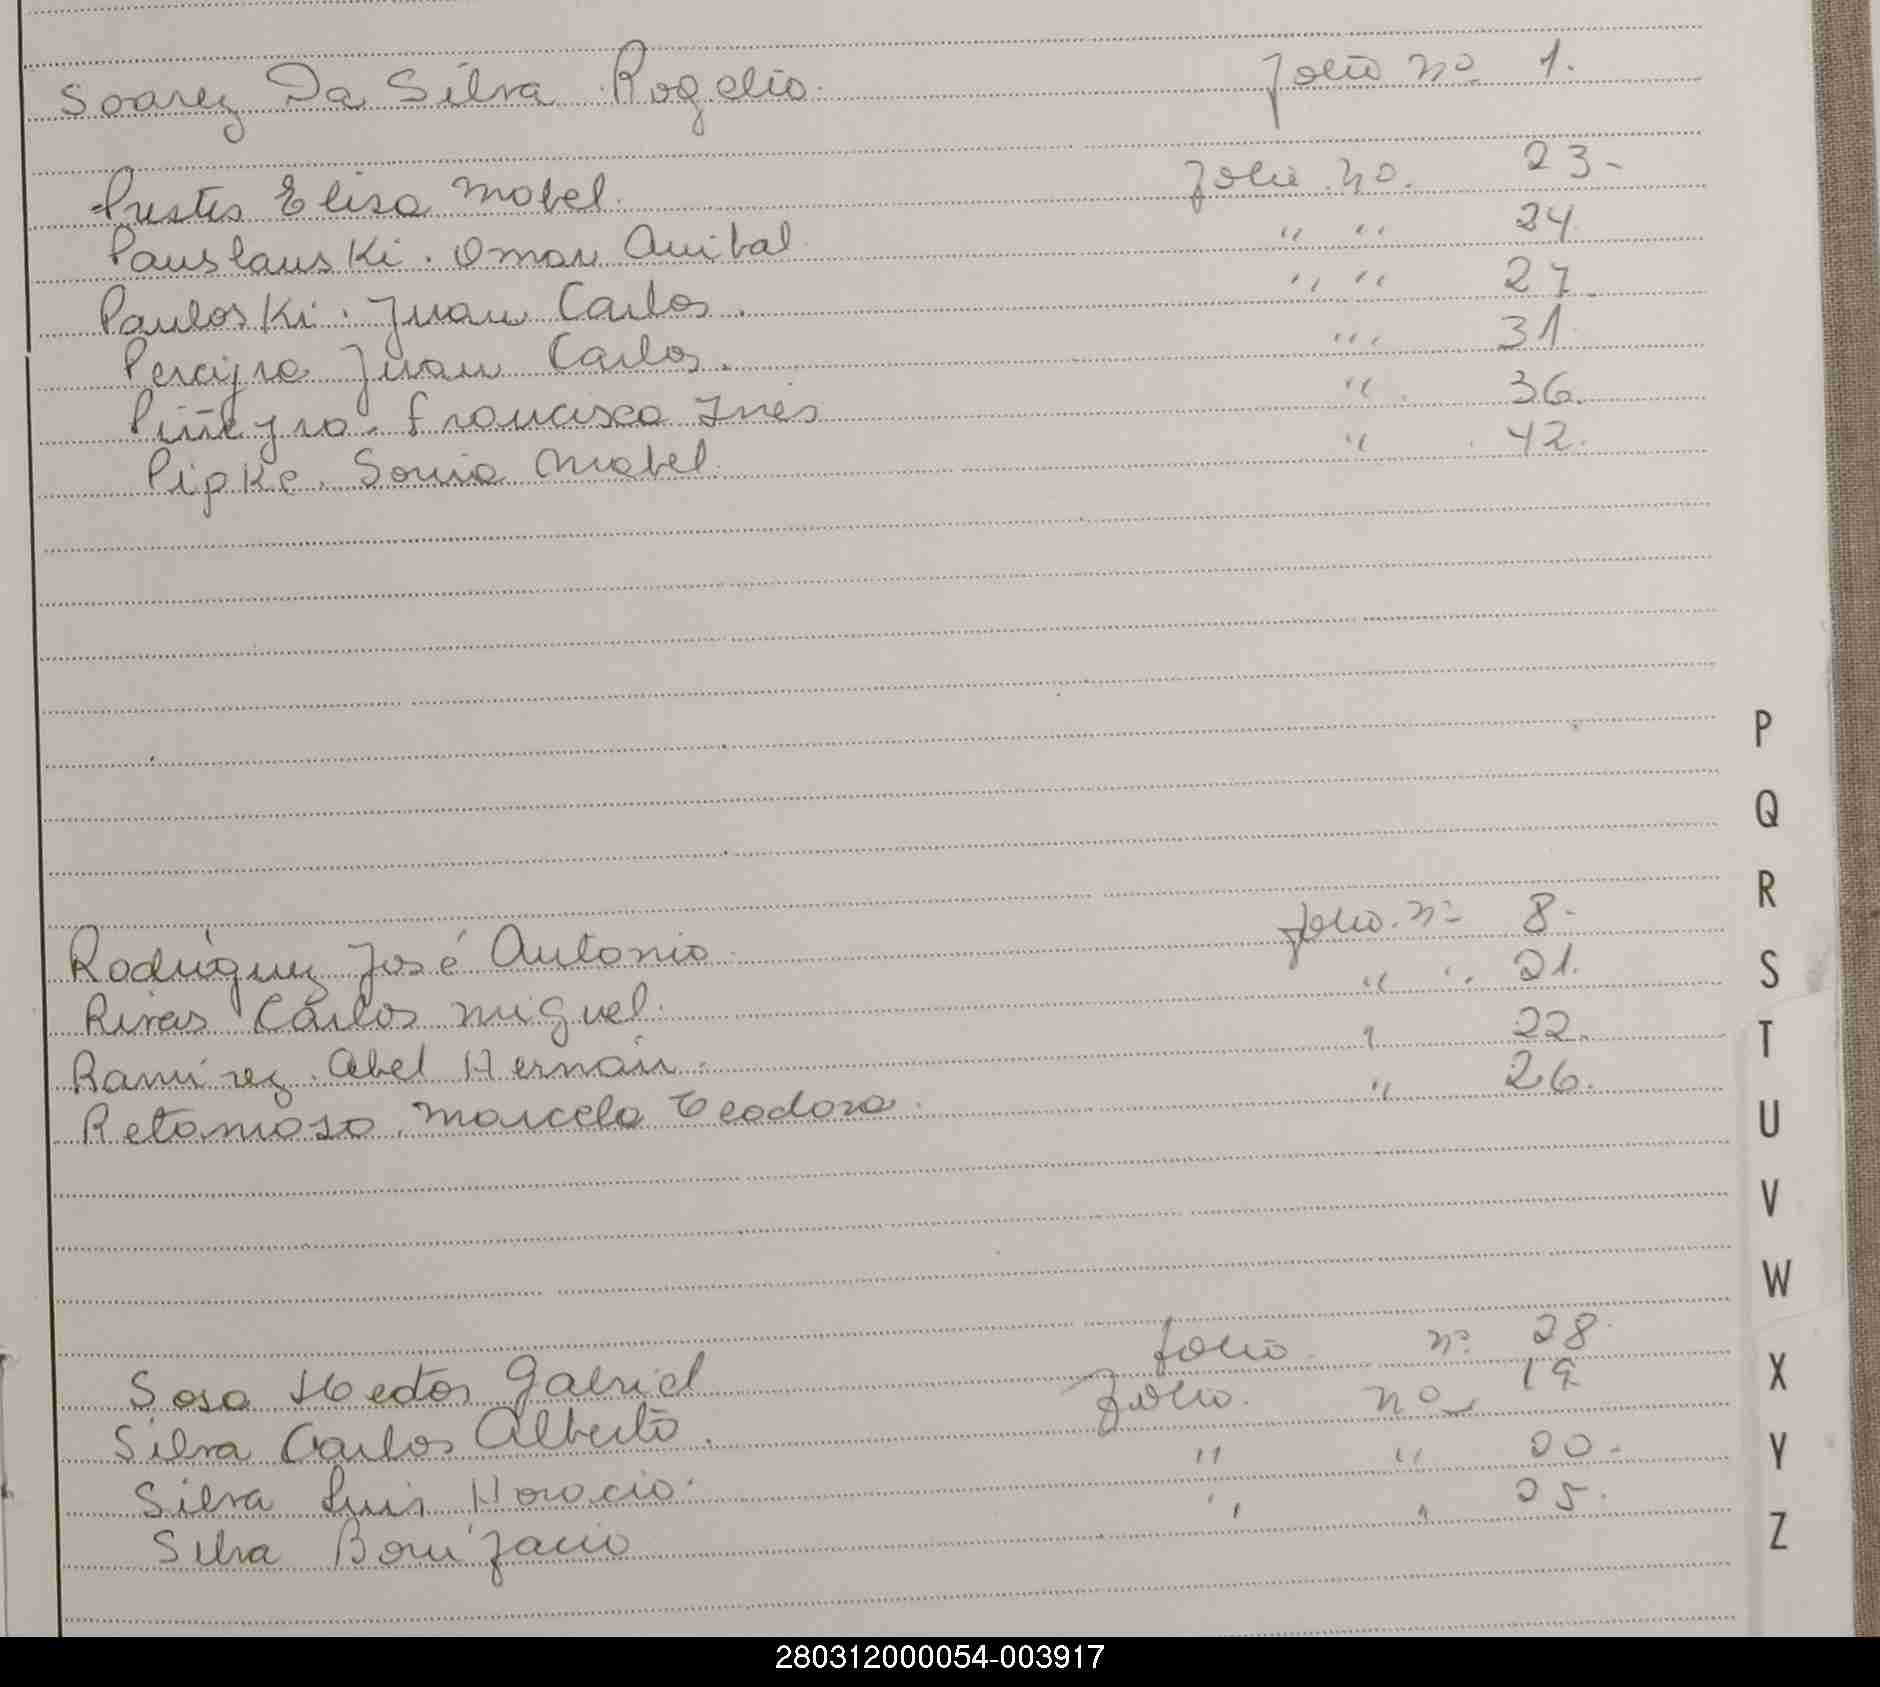 Soarez Da Silva Rogelio. folio nº 1.
Prestes Elisa Mabel. folio nº. 23.-
Pauslauski. Omar Anibal. " " 24.
Pauloski. Juan Carlos. " " 27.
Pereijra Juan Carlos. "' 31.
Piñeyro. Francisca Ines " 36.
Pipke. Sonia Mabel. " 42.
P
Q
R
Rodriguez José Antonio. folio. nº 8.-
S
Rivas Carlos Miguel. " " 21.
T
Ramirez. Abel Hernan. " 22.
Retamoso. Marcelo Teodoro. " 26.
U
V
W
Sosa Hector Gabriel folio nº 28.
X
Silva Carlos Alberto. folio. nº 19
Y
Silva Luis Horacio. " " 20.-
Silva Bonifacio " " 25.
Z
280312000054-003917